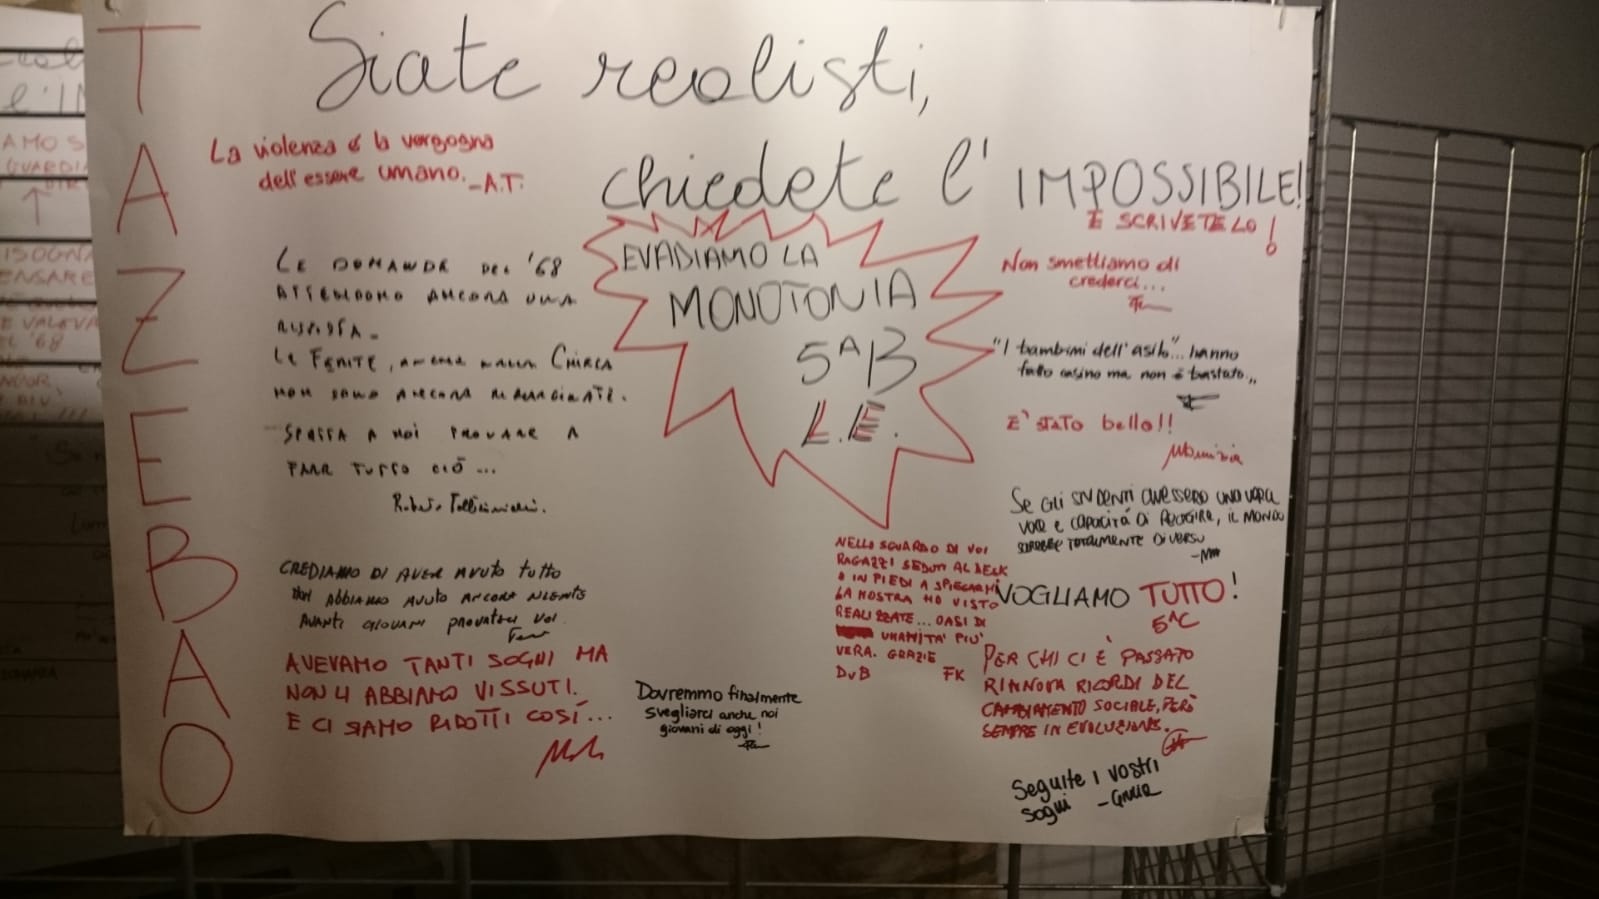 TAZEBAO
Siate realisti,
chiedete l' IMPOSSIBILE!
E SCRIVETELO!
La violenza è la vergogna
dell'essere umano. -A.T.
LE DOMANDE DEL '68
ATTENDONO ANCORA UNA
RISPOSTA.
LE FERITE, ANCHE NELLA CHIESA
NON SONO ANCORA RIMARGINATE.
SPETTA A NOI PROVARE A
FARE TUTTO CIÒ...
CREDIAMO DI AVER AVUTO TUTTO
NON ABBIAMO AVUTO ANCORA NIENTE
AVANTI GIOVANI PROVATECI VOI
AVEVAMO TANTI SOGNI MA
NON LI ABBIAMO VISSUTI.
E CI SIAMO RIDOTTI COSÍ...
EVADIAMO LA
MONOTONIA
5ᴬB
L.E.
Dovremmo finalmente
svegliarci anche noi
giovani di oggi!
NELLO SGUARDO DI VOI
RAGAZZI SEDUTI AL DESK
O IN PIEDI A SPIEGARMI
LA MOSTRA HO VISTO
REALIZZATE... OASI DI
UMANITA' PIU'
VERA. GRAZIE
DvB FK
Non smettiamo di
crederci...
"I bambini dell'asilo"... hanno
fatto casino ma non è bastato..
E' STATO bello!!
SE GLI STUDENTI AVESSERO UNA VERA
VOCE E CAPACITÁ DI REAGIRE, IL MONDO
SAREBBE TOTALMENTE DIVERSO
VOGLIAMO TUTTO!
5ᴬC
PER CHI CI È PASSATO
RINNOVA RICORDI DEL
CAMBIAMENTO SOCIALE, PERÒ
SEMPRE IN EVOLUZIONE.
Seguite i vostri
sogni -GIULIA
AMO S
GUARDIA
ISOGNA
ENSARE
E VALEVA
EL '68